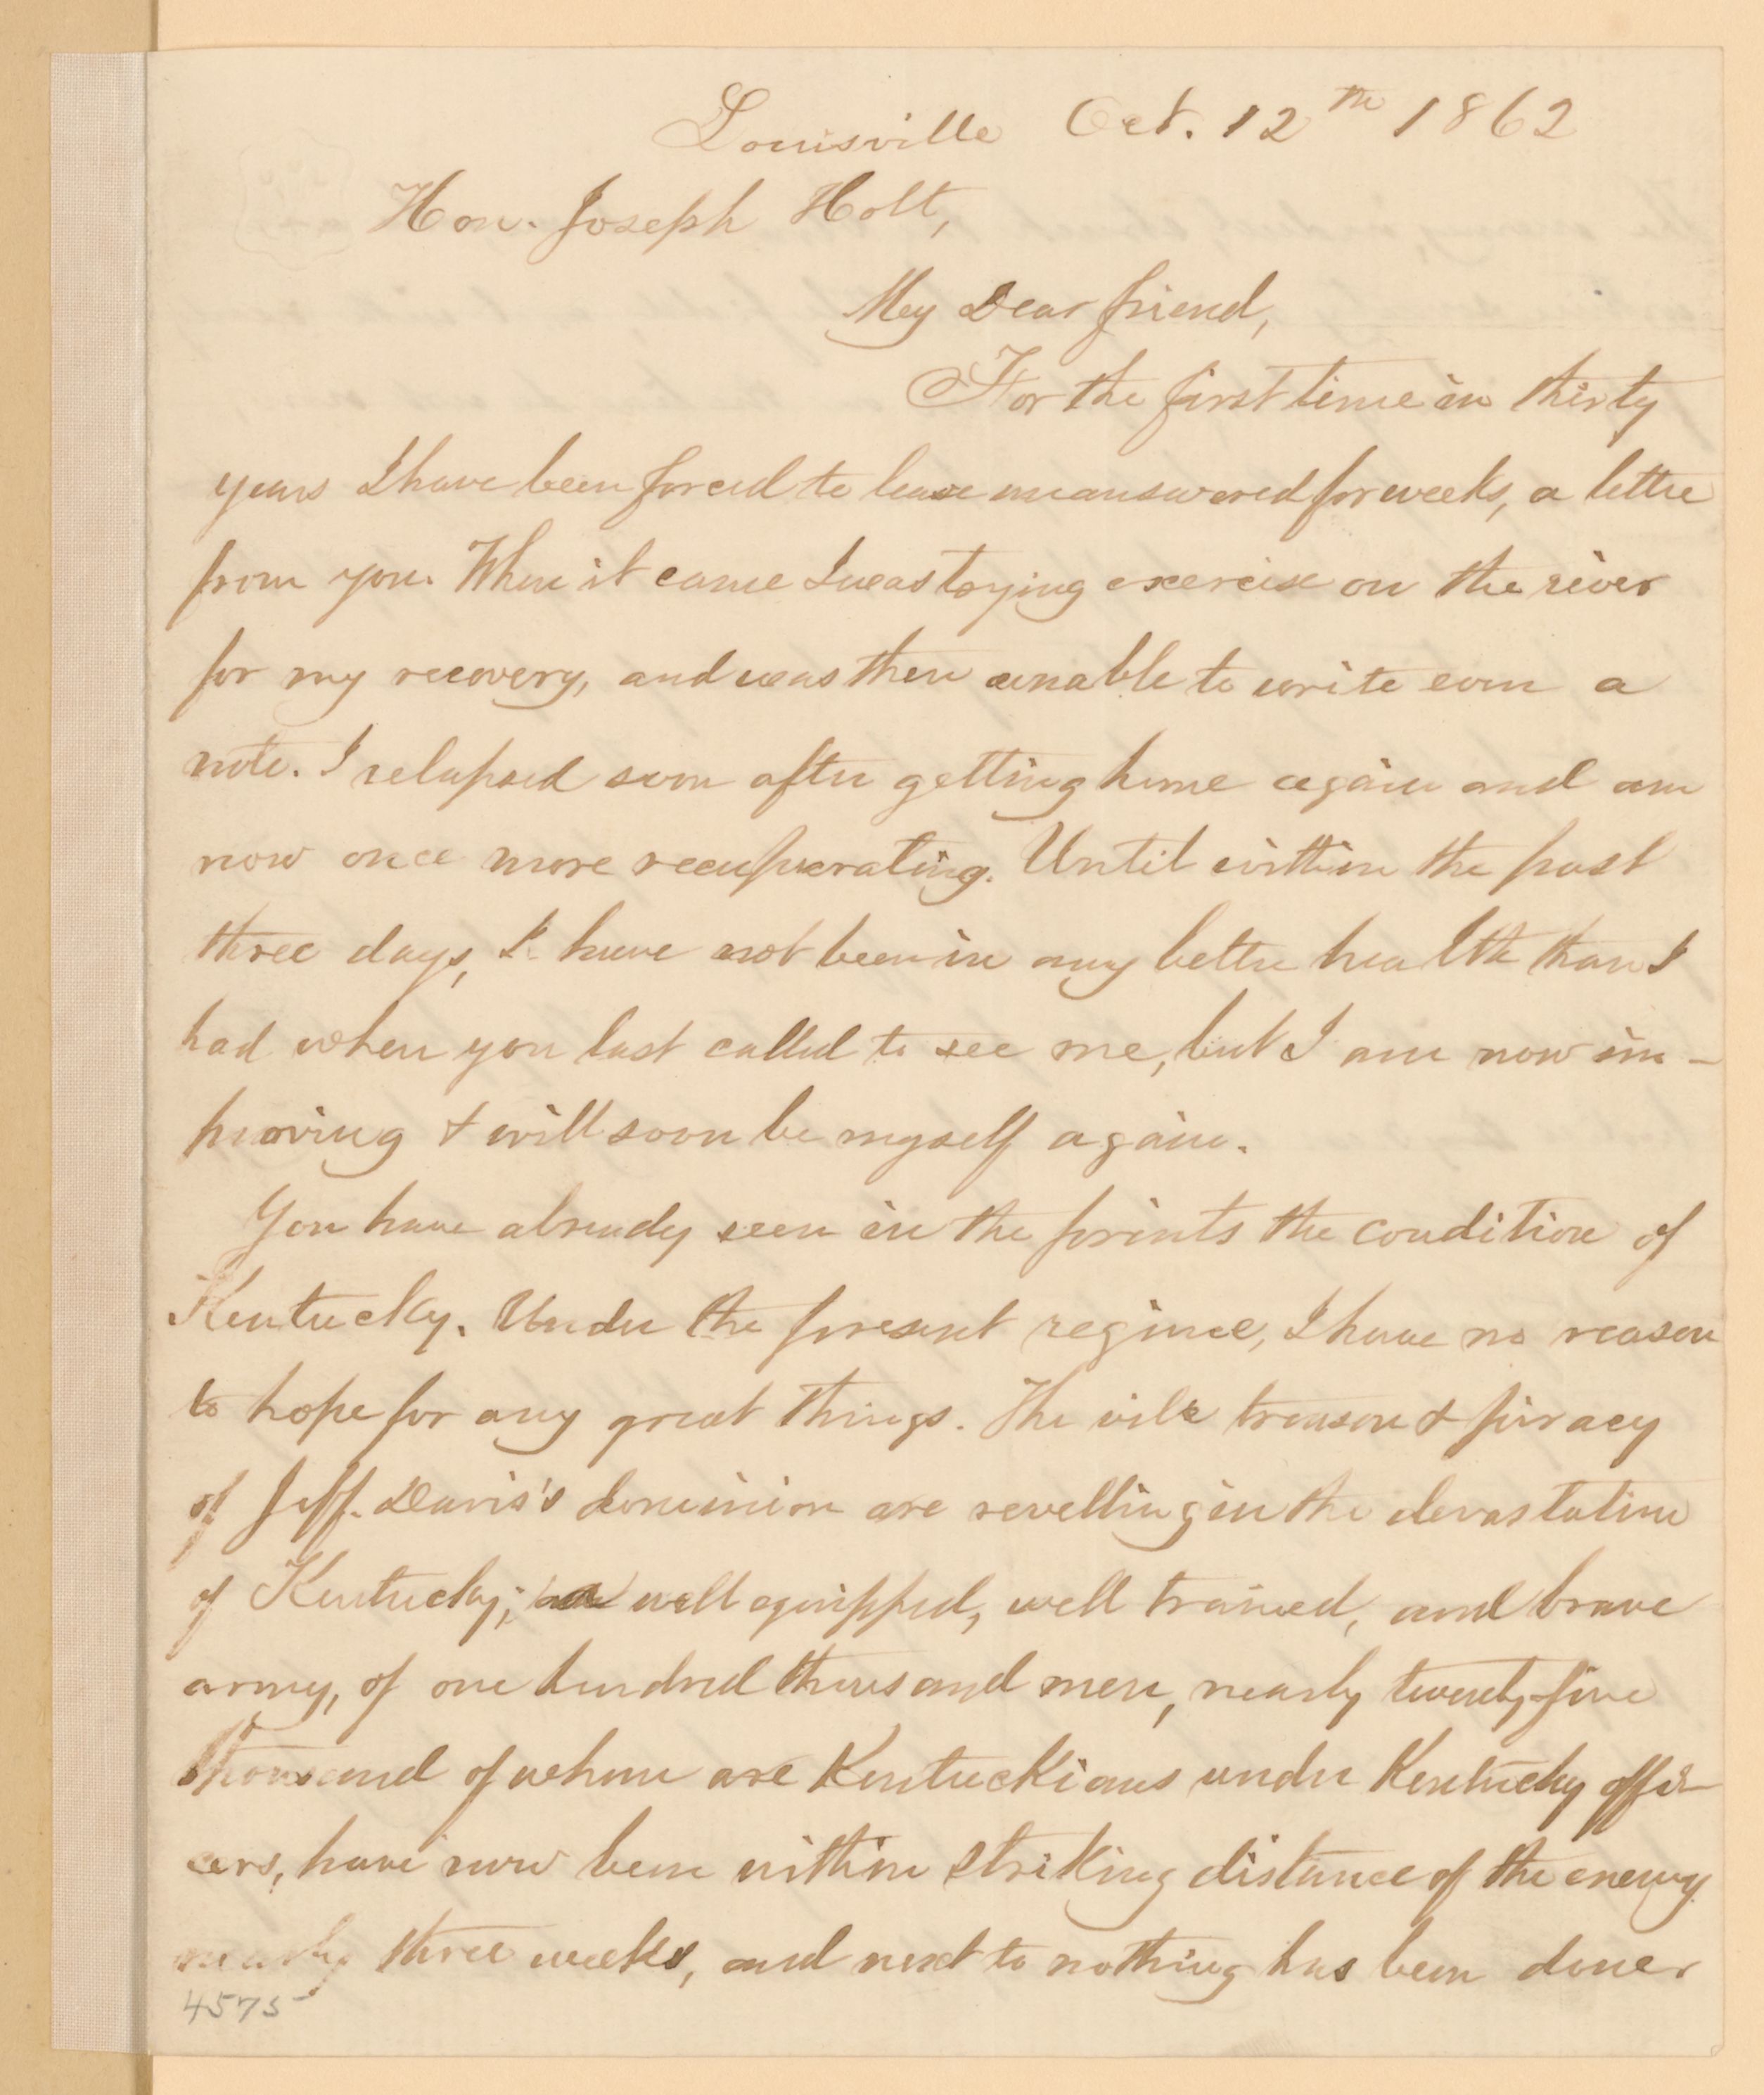 Louisville Oct. 12th 1862
Hon. Joseph Holt,
My Dear friend,
For the first time in thirty
years I have been forced to leave unanswered for weeks, a letter
from you. When it came I was trying exercise on the river
for my recovery, and was then unable to write even a
note. I relapsed soon after getting home again and am
now once more recuperating. Until within the past
three days, I have not been in any better health than I
had when you last called to see me, but I am now im-
proving & will soon be myself again.
You have already seen in the prints the condition of
Kentucky. Under the present regime, I have no reason
to hope for any great things. The vile treason & piracy
of Jeff. Davis's dominion are revelling in the devastation
of Kentucky; a well equipped, well trained, and brave
army, of one hundred thousand men, nearly twenty-five
thousand of whom are Kentuckians under Kentucky offi-
cers, have now been within striking distance of the enemy
nearly three weeks, and next to nothing has been done.
4575